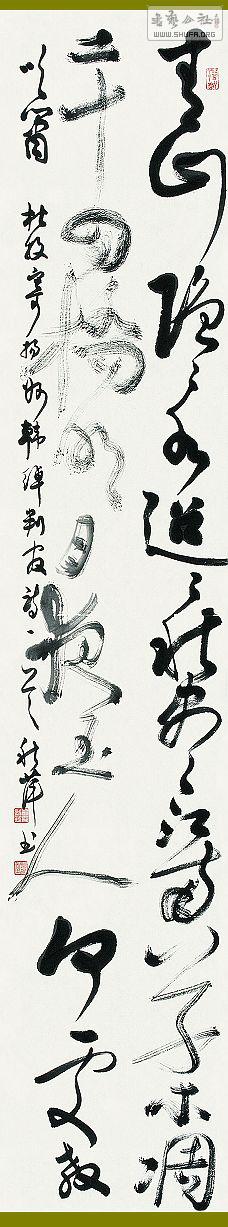 青山隐〻水迢〻秋尽江南草木凋
二十四橋明月夜玉人何處教
吹簫 杜牧寄揚州韓绰判官詩一首 秋萍书
書藝公社
WWW.SHUFA.ORG